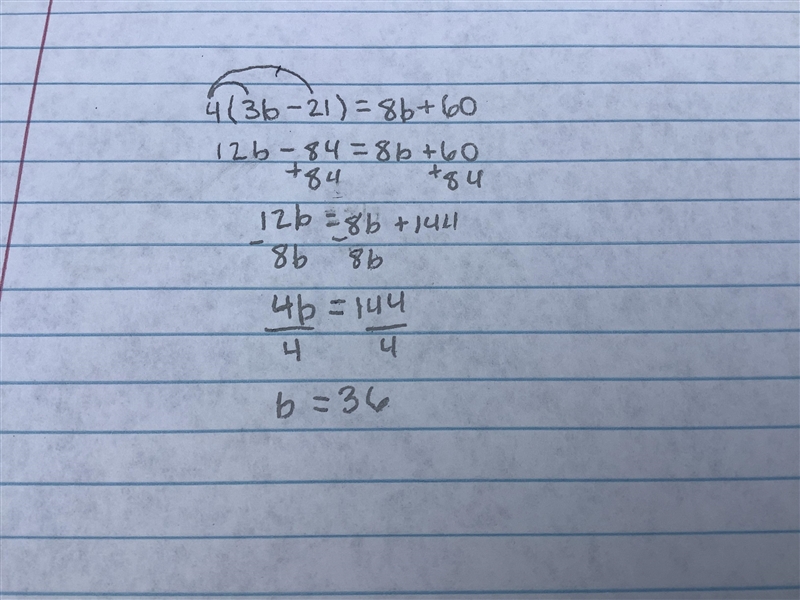 4(3b - 21) = 8b + 60
12b - 84 = 8b + 60
+84 +84
12b = 8b + 144
- 8b - 8b
4b = 144
4 4
b = 36